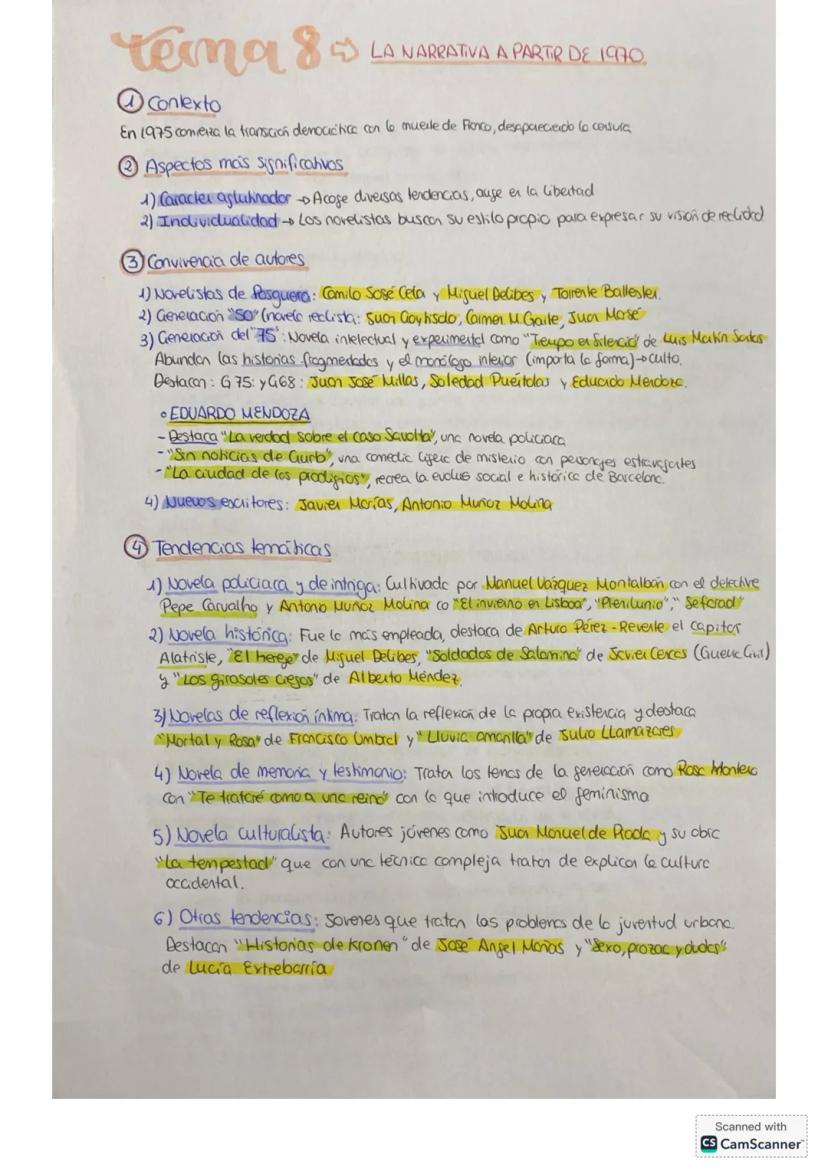 Tema 8 ⇨ LA NARRATIVA A PARTIR DE 1970.
① Contexto
En 1975 comienza la transición democrática con la muerte de Franco, desapareciendo la censura
② Aspectos más significativos
1) Carácter aglutinador → Acoge diversas tendencias, auge en la libertad
2) Individualidad → Los novelistas buscan su estilo propio para expresar su visión de realidad
③ Convivencia de autores
1) Novelistas de Posguerra: Camilo José Cela y Miguel Delibes y Torrente Ballester.
2) Generación "50" (novela realista: Juan Goytisolo, Carmen M. Gaite, Juan Marsé
3) Generación del "75": Novela intelectual y experimental como "Tiempo en Silencio" de Luis Martín Santos
Abundan las historias fragmentadas y el monólogo interior (importa la forma) → culto.
Destacan: G75: y G68: Juan José Millas, Soledad Puértolas y Eduardo Mendoza.
• EDUARDO MENDOZA
- Destaca "La verdad sobre el caso Savolta", una novela policiaca
- "Sin noticias de Gurb", una comedia ligera de misterio con personajes extravagantes
- "La ciudad de los prodigios", recrea la evolus social e histórica de Barcelona.
4) Nuevos escritores: Javier Marías, Antonio Muñoz Molina
④ Tendencias temáticas
1) Novela policiaca y de intriga: Cultivada por Manuel Vázquez Montalbán con el detective
Pepe Carvalho y Antonio Muñoz Molina co "El invierno en Lisboa", "Plenilunio", "Sefarad"
2) Novela histórica: Fue la más empleada, destaca de Arturo Pérez-Reverte el capitan
Alatriste, "El hereje" de Miguel Delibes, "Soldados de Salamina" de Javier Cercas (Guerra Civil)
y "Los girasoles ciegos" de Alberto Méndez.
3) Novelas de reflexión íntima: Tratan la reflexión de la propia existencia y destaca
"Mortal y Rosa" de Francisco Umbral y "Lluvia amarilla" de Julio Llamazares
4) Novela de memoria y testimonio: Trata los temas de la generación como Rosa Montero
con "Te trataré como a una reina" con lo que introduce el feminismo
5) Novela culturalista: Autores jóvenes como Juan Manuel de Prada y su obra
"La tempestad" que con una técnica compleja tratan de explicar la cultura
occidental.
6) Otras tendencias: Jóvenes que tratan los problemas de la juventud urbana.
Destacan "Historias de Kronen" de José Angel Mañas y "Sexo, prozac y dudas"
de Lucía Extrebarría
Scanned with
CS CamScanner